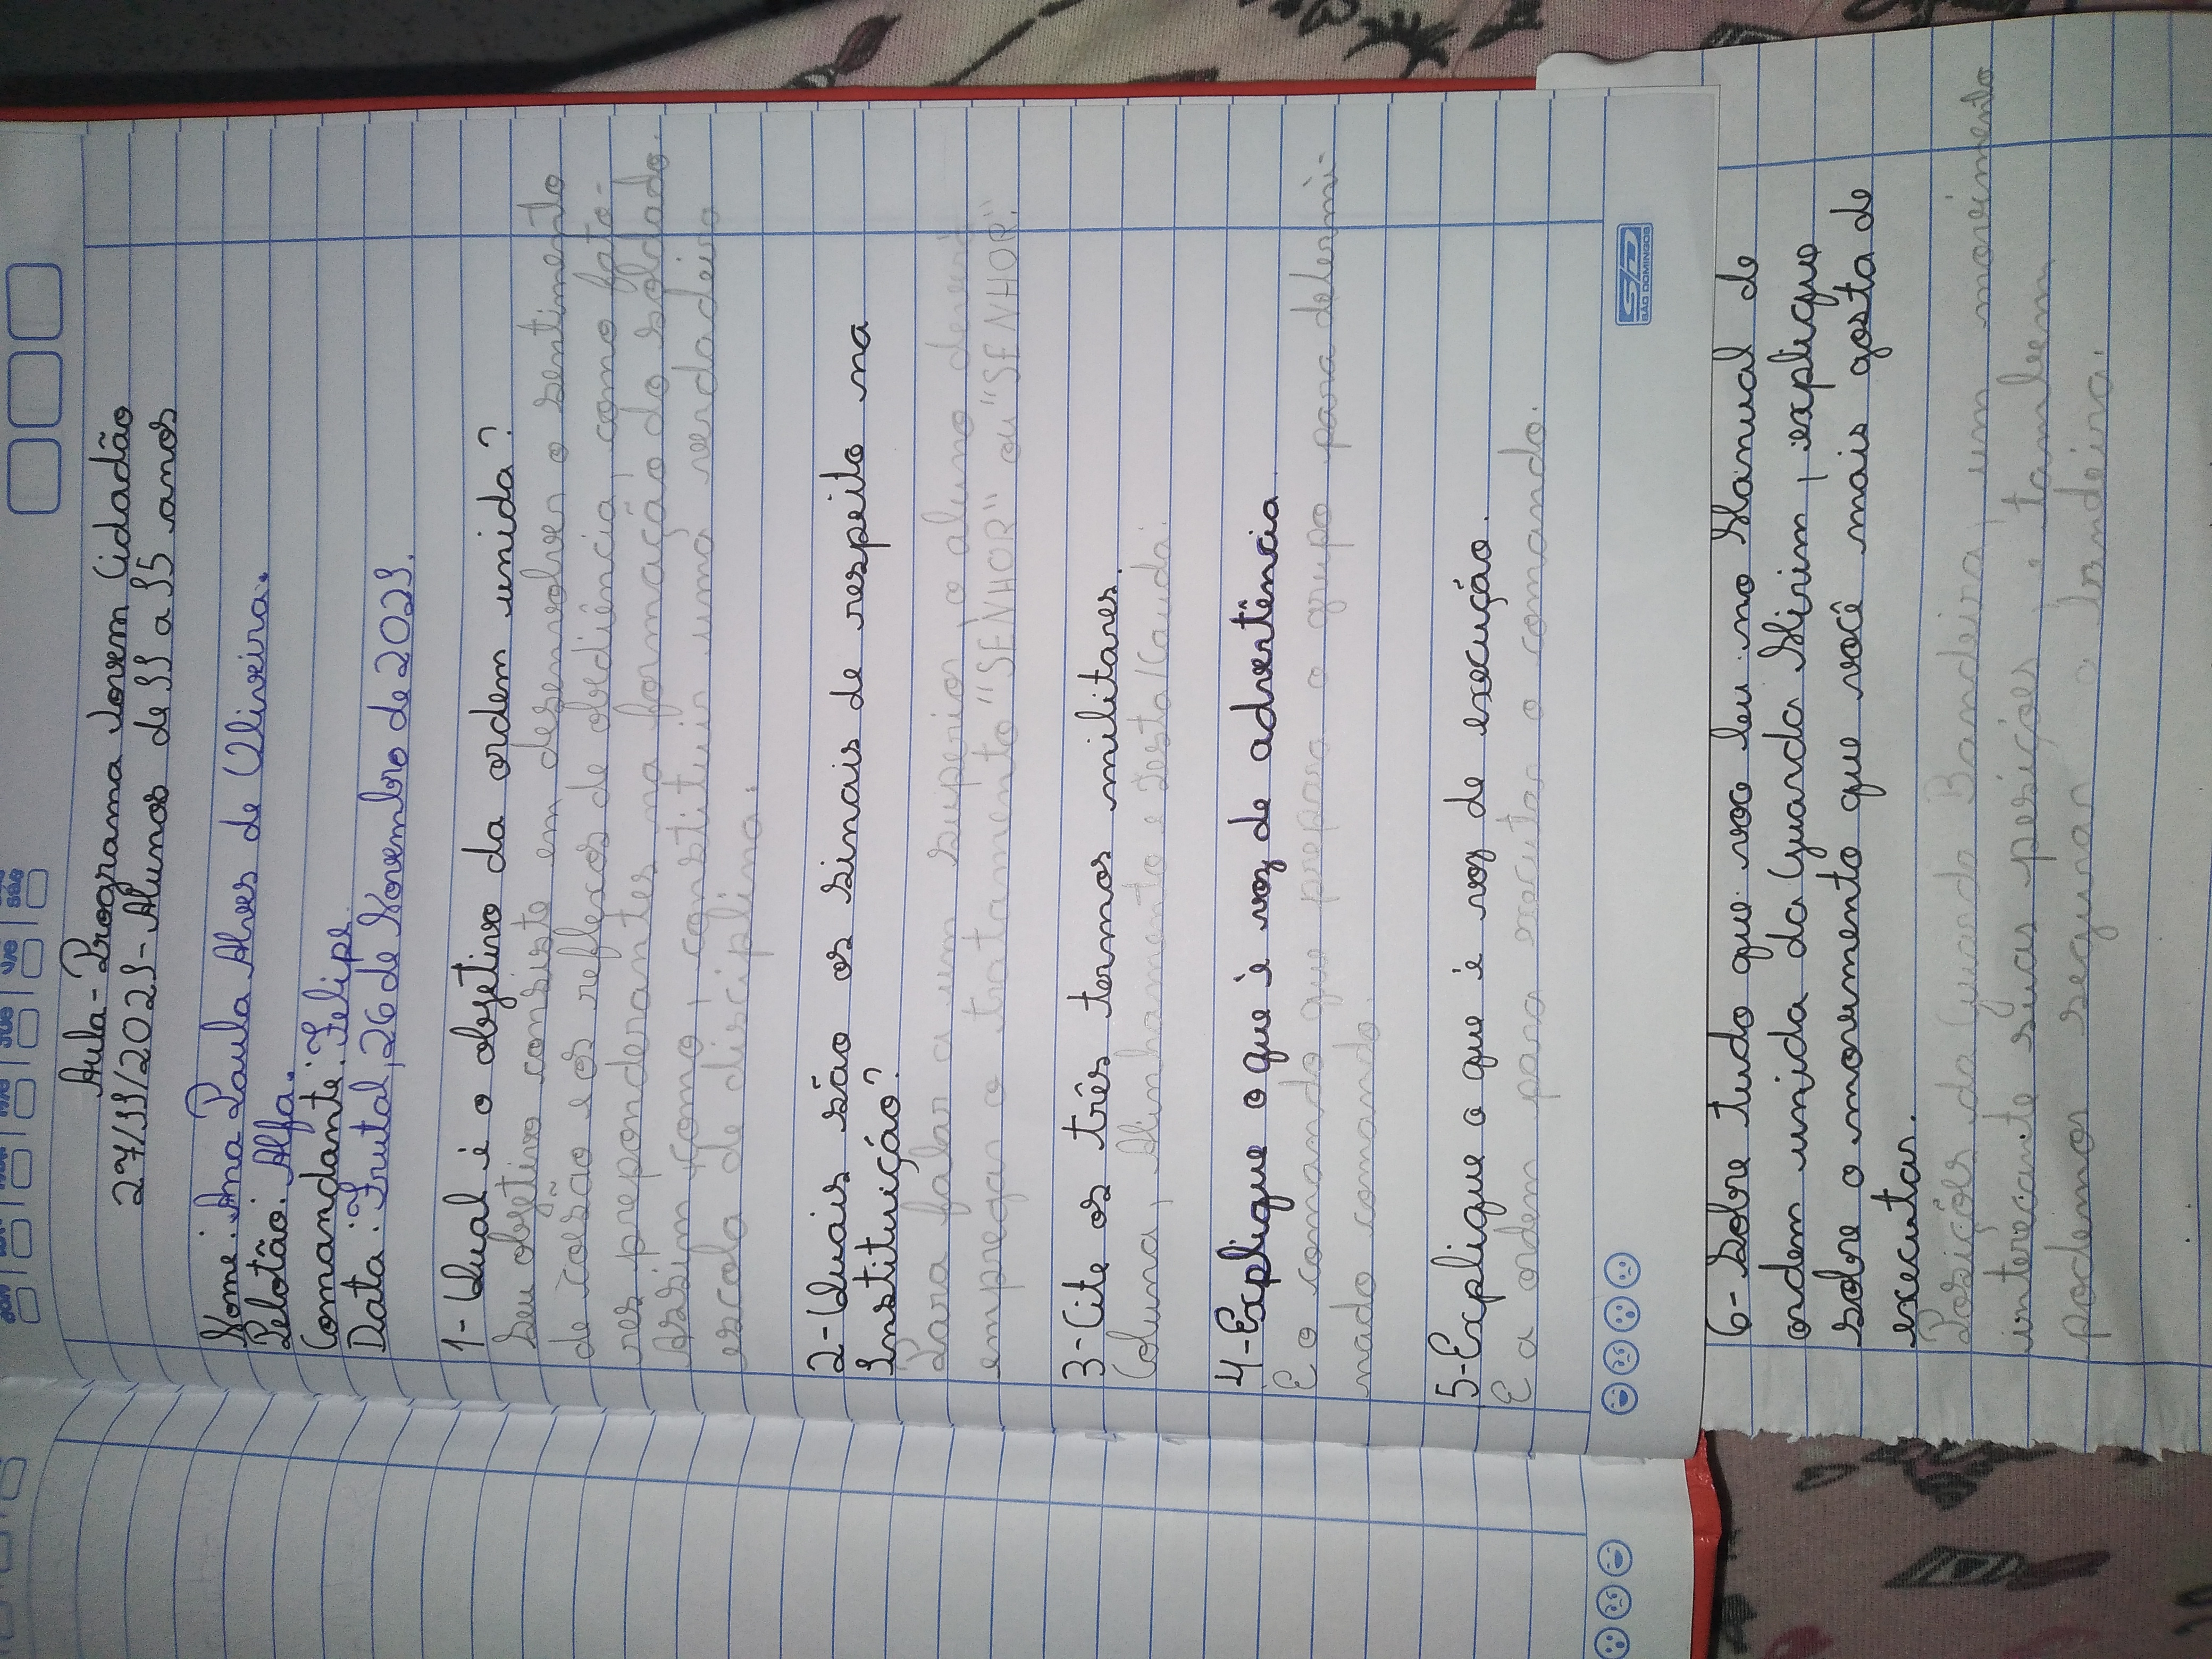 Aula - Programa Jovem Cidadão
27/11/2021 - Alunos de 11 a 15 anos
Nome: Ana Paula Alves de Oliveira.
Pelotão: Alfa.
Comandante: Felipe.
Data: Frutal, 26 de Novembro de 2021.
1- Qual é o objetivo da ordem unida?
Seu objetivo consiste em desenvolver o sentimento
de coesão e os reflexos de obediência, como fato-
res preponderantes na formação do soldado.
Assim como, constituir uma verdadeira
escola de disciplina.
2- Quais são os sinais de respeito na
Instituição?
Para falar a um superior, o aluno deverá
empregar o tratamento "SENHOR" ou "SENHOR".
3- Cite os três termos militares.
Coluna, Alinhamento e Testa/Cauda.
4- Explique o que è voz de advertência.
E o comando que prepara o grupo para determi-
nado comando.
5- Explique o que é voz de execução.
E a ordem para executar o comando.
6- Sobre tudo que voc leu no Manual de
ordem unida da Guarda Mirim, explique
sobre o movimento que você mais gosta de
executar.
Posições da Guarda Bandeira, um movimento
interecante suas posições, e tambem
podemos segurar a bandeira.
SD
SÃO DOMINGOS